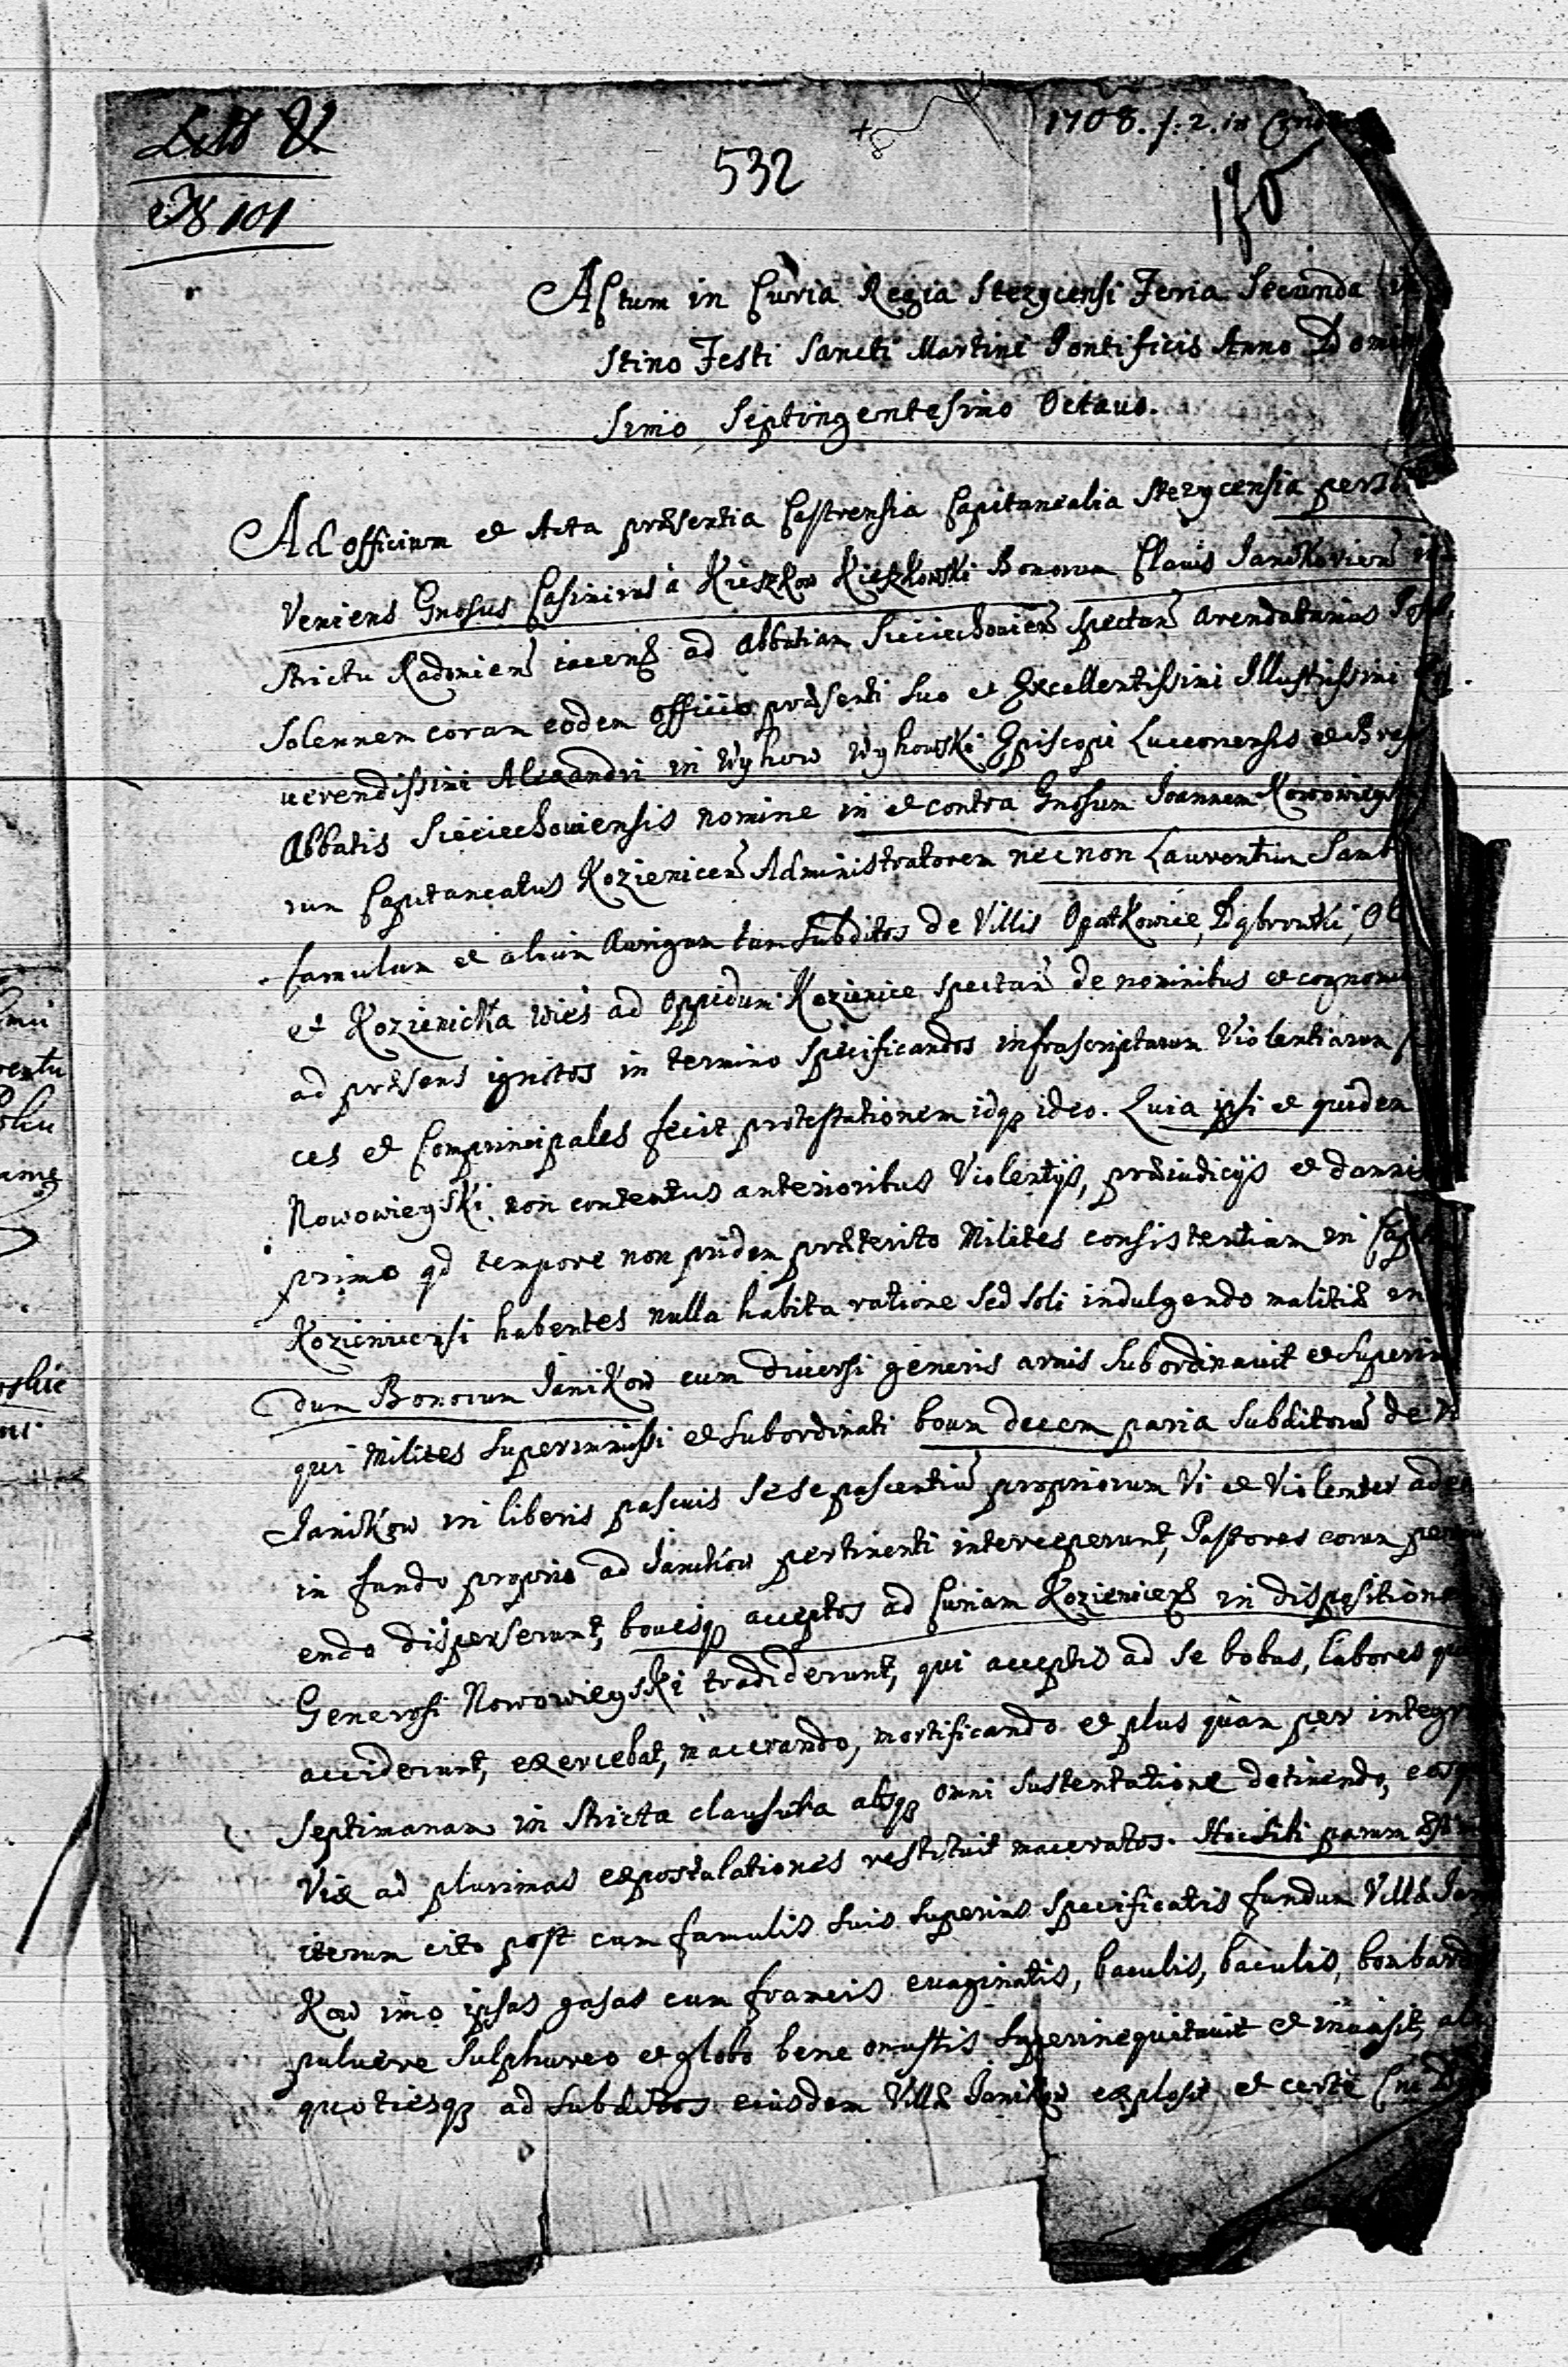 Litt V.
N 101
532
1708. f: 2. in
170
Actum in Curia Regia Stezycensi Feria Secunda
stino Festi Sancti Martini Pontificis Anno Domi
simo Septingentesimo Octavo.
Ad officium et Acta præsentia Castrensia Capitanealia Stezycensia perso
veniens Gnosus Casimirus à Kieszkow Kieszkowski Bonorum Clavis Janikovien
strictu Radomien iacen ad Abbatiam Sieciechovien spectan arendatarius
solennem coram eodem officio præsenti suo et Excellentissimi Illustrissimi
verendissimi Alexandri in Wyhow Wyhowski Episcopi Luceoriensis et Bres
Abbatis Sieciechoviensis nomine in et contra Gnosum Joannem Nowowieys
rum Capitaneatus Kozienicen Administratorem nec non Laurentium Samb
famulum et alium Aurigam tum subditos de Villis Opatkowice, Dąbrowki, Ol
et Kozienicka wies ad Oppidum Kozienice spectan de nominibus et cognomi
ad præsens ignotos in termino specificandos infrascriptarum Violentiarum
ces et Comprincipales fecit protestationem idq ideo. Quia ipsi et quidem
Nowowieyski non contentus anterioribus Violentijs, præiudicijs et damnis
primo qd tempore non pridem præterito Milites consistentiam in Capit
Kozienicensi habentes nulla habita ratione sed soli indulgendo malitiæ in
dum Bonorum Janikow cum diversi generis armis subordinavit et superim
qui Milites superimmissi et subordinati boum decem paria subditorum de
Janikow in liberis pascuis sese pascentiu propriorum Vi et Violenter
in fundo proprio ad Janikow pertinenti interceperunt, Pastores eorum
endo disperserunt, bovesq acceptos ad Curiam Kozienicen in dispositione
Generosi Nowowieyski tradiderunt, qui acceptis ad se bobus, labores
acciderunt, exercebat, macerando, mortificando et plus quàm per integr
septimanam in stricta clausura absq omni sustentatione detinendo, eosq
Vix ad plurimas expostulationes restituit maceratos. Hoc sibi parum
iterum cito post cum famulis suis superius specificatis fundum Villæ Jani
kow imo ipsas gasas cum frameis evaginatis, baculis, baculis, bombard
pulvere sulphureo et globo bene onustis superinequitavit et invasit,
quotiesq ad subditos eiusdem Villæ Janikow explosit et certè